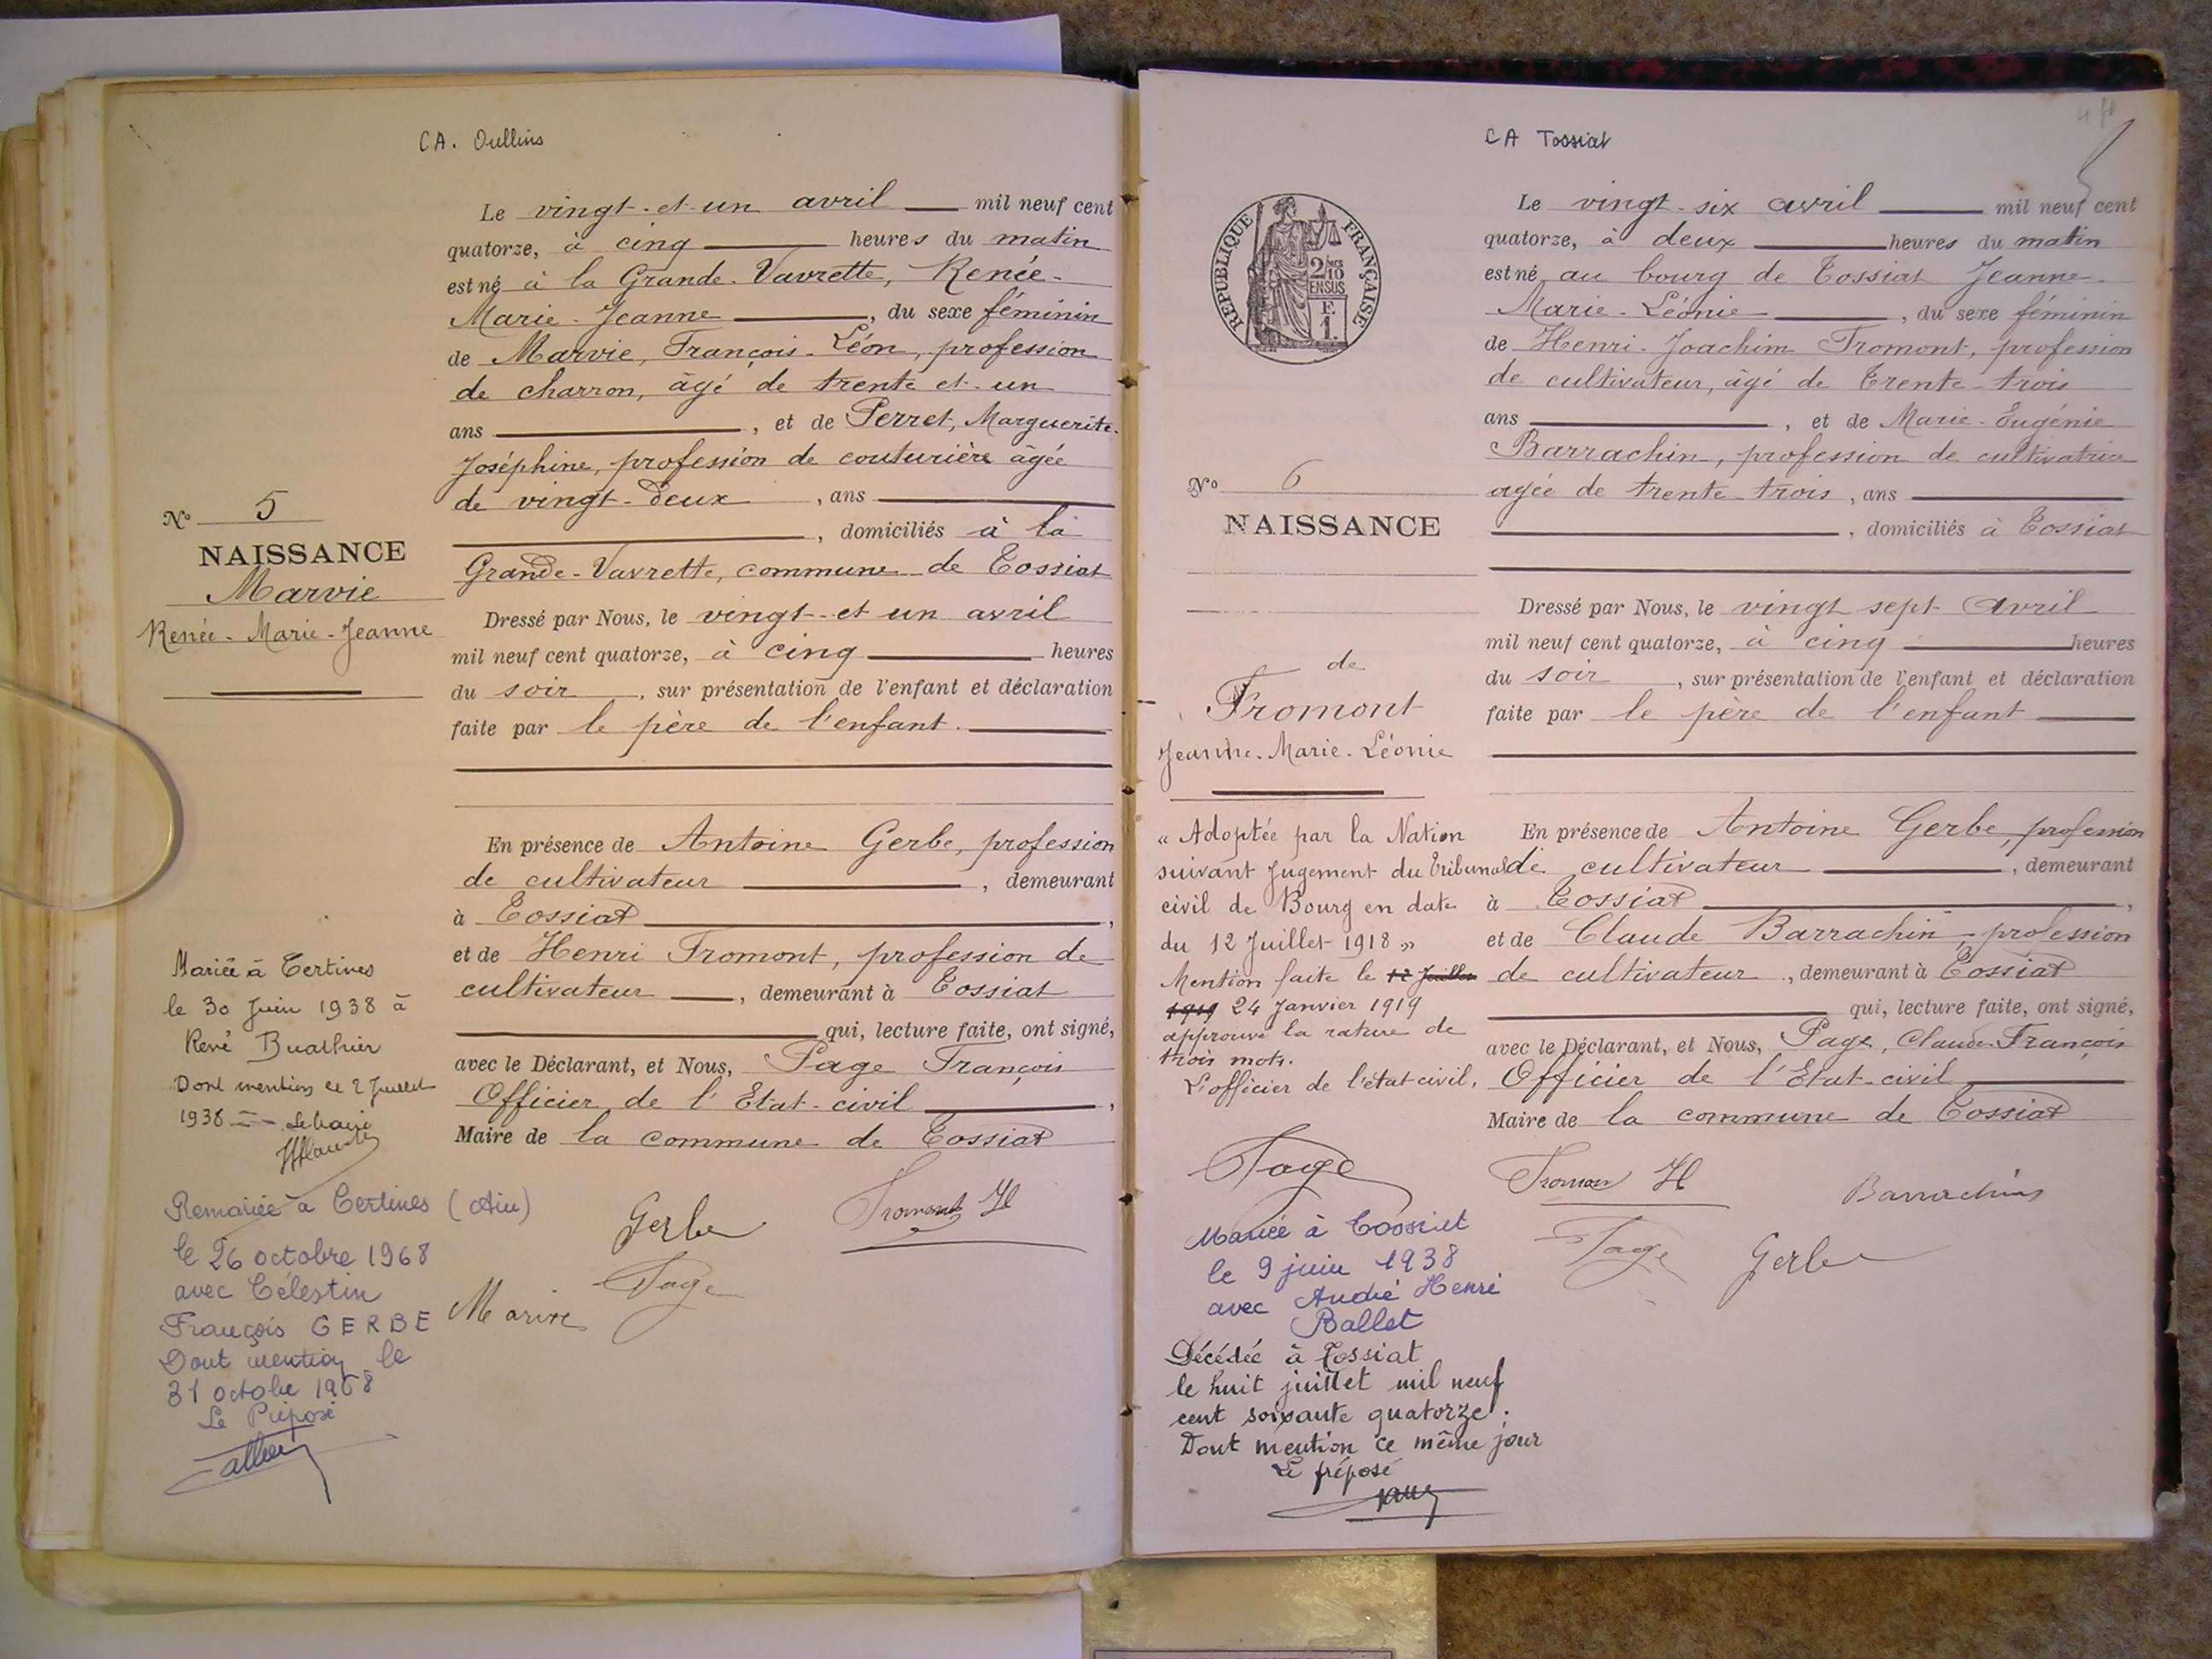 CA. Oullins
Le vingt-et-un avril mil neuf cent
quatorze, à cinq heures du matin
est né à la Grande-Vavrette, Renée-
Marie-Jeanne, du sexe féminin
de Marvie, François-Léon, profession
de charron, âgé de trente et un
ans, et de Perret, Marguerite-
Joséphine, profession de couturière âgée
de vingt-deux, ans
, domiciliés à la
Grande-Vavrette, commune de Tossiat
Dressé par Nous, le vingt-et un avril
mil neuf cent quatorze, à cinq heures
du soir, sur présentation de l'enfant et déclaration
faite par le père de l'enfant.
En présence de Antoine Gerbe, profession
de cultivateur, demeurant
à Tossiat,
et de Henri Fromont, profession de
cultivateur, demeurant à Tossiat
qui, lecture faite, ont signé,
avec le Déclarant, et Nous, Page François
Officier de l'Etat-civil,
Maire de la commune de Tossiat
Gerbe
Fromont H
Page
Marvie
No 5
NAISSANCE
Marvie
Renée-Marie-Jeanne
Mariée à Certines
le 30 Juin 1938 à
René Buathier
Dont mention le 2 Juillet
1938 Le Maire
Remariée à Certines (Ain)
le 26 octobre 1968
avec Célestin
François GERBE
Dont mention le
31 octobre 1968
Le Préposé
CA Tossiat
Le vingt-six avril mil neuf cent
quatorze, à deux heures du matin
est né au bourg de Tossiat Jeanne-
Marie-Léonie, du sexe féminin
de Henri-Joachim Fromont, profession
de cultivateur, âgé de trente-trois
ans, et de Marie-Eugénie
Barrachin, profession de cultivatrice
agée de trente-trois, ans
, domiciliés à Tossiat
Dressé par Nous, le vingt sept Avril
mil neuf cent quatorze, à cinq heures
du soir, sur présentation de l'enfant et déclaration
faite par le père de l'enfant
En présence de Antoine Gerbe, profession
de cultivateur, demeurant
à Tossiat,
et de Claude Barrachin, profession
de cultivateur, demeurant à Tossiat
qui, lecture faite, ont signé,
avec le Déclarant, et Nous, Page, Claude François
Officier de l'Etat-civil
Maire de la commune de Tossiat
Fromont H
Barrachin
Page
Gerbe
REPUBLIQUE FRANÇAISE
2/10
EN SUS
F.
1.
No 6
NAISSANCE
de
Fromont
Jeanne-Marie-Léonie
« Adoptée par la Nation
suivant Jugement du Tribunal
civil de Bourg en date
du 12 Juillet 1918 »
Mention faite le 12 Juillet
1919 24 Janvier 1919
approuvé la rature de
trois mots.
L'officier de l'état civil,
Page
Mariée à Tossiat
le 9 juin 1938
avec André Henri
Ballet
Décédée à Tossiat
le huit juillet mil neuf
cent soixante quatorze.
Dont mention ce même jour
Le préposé